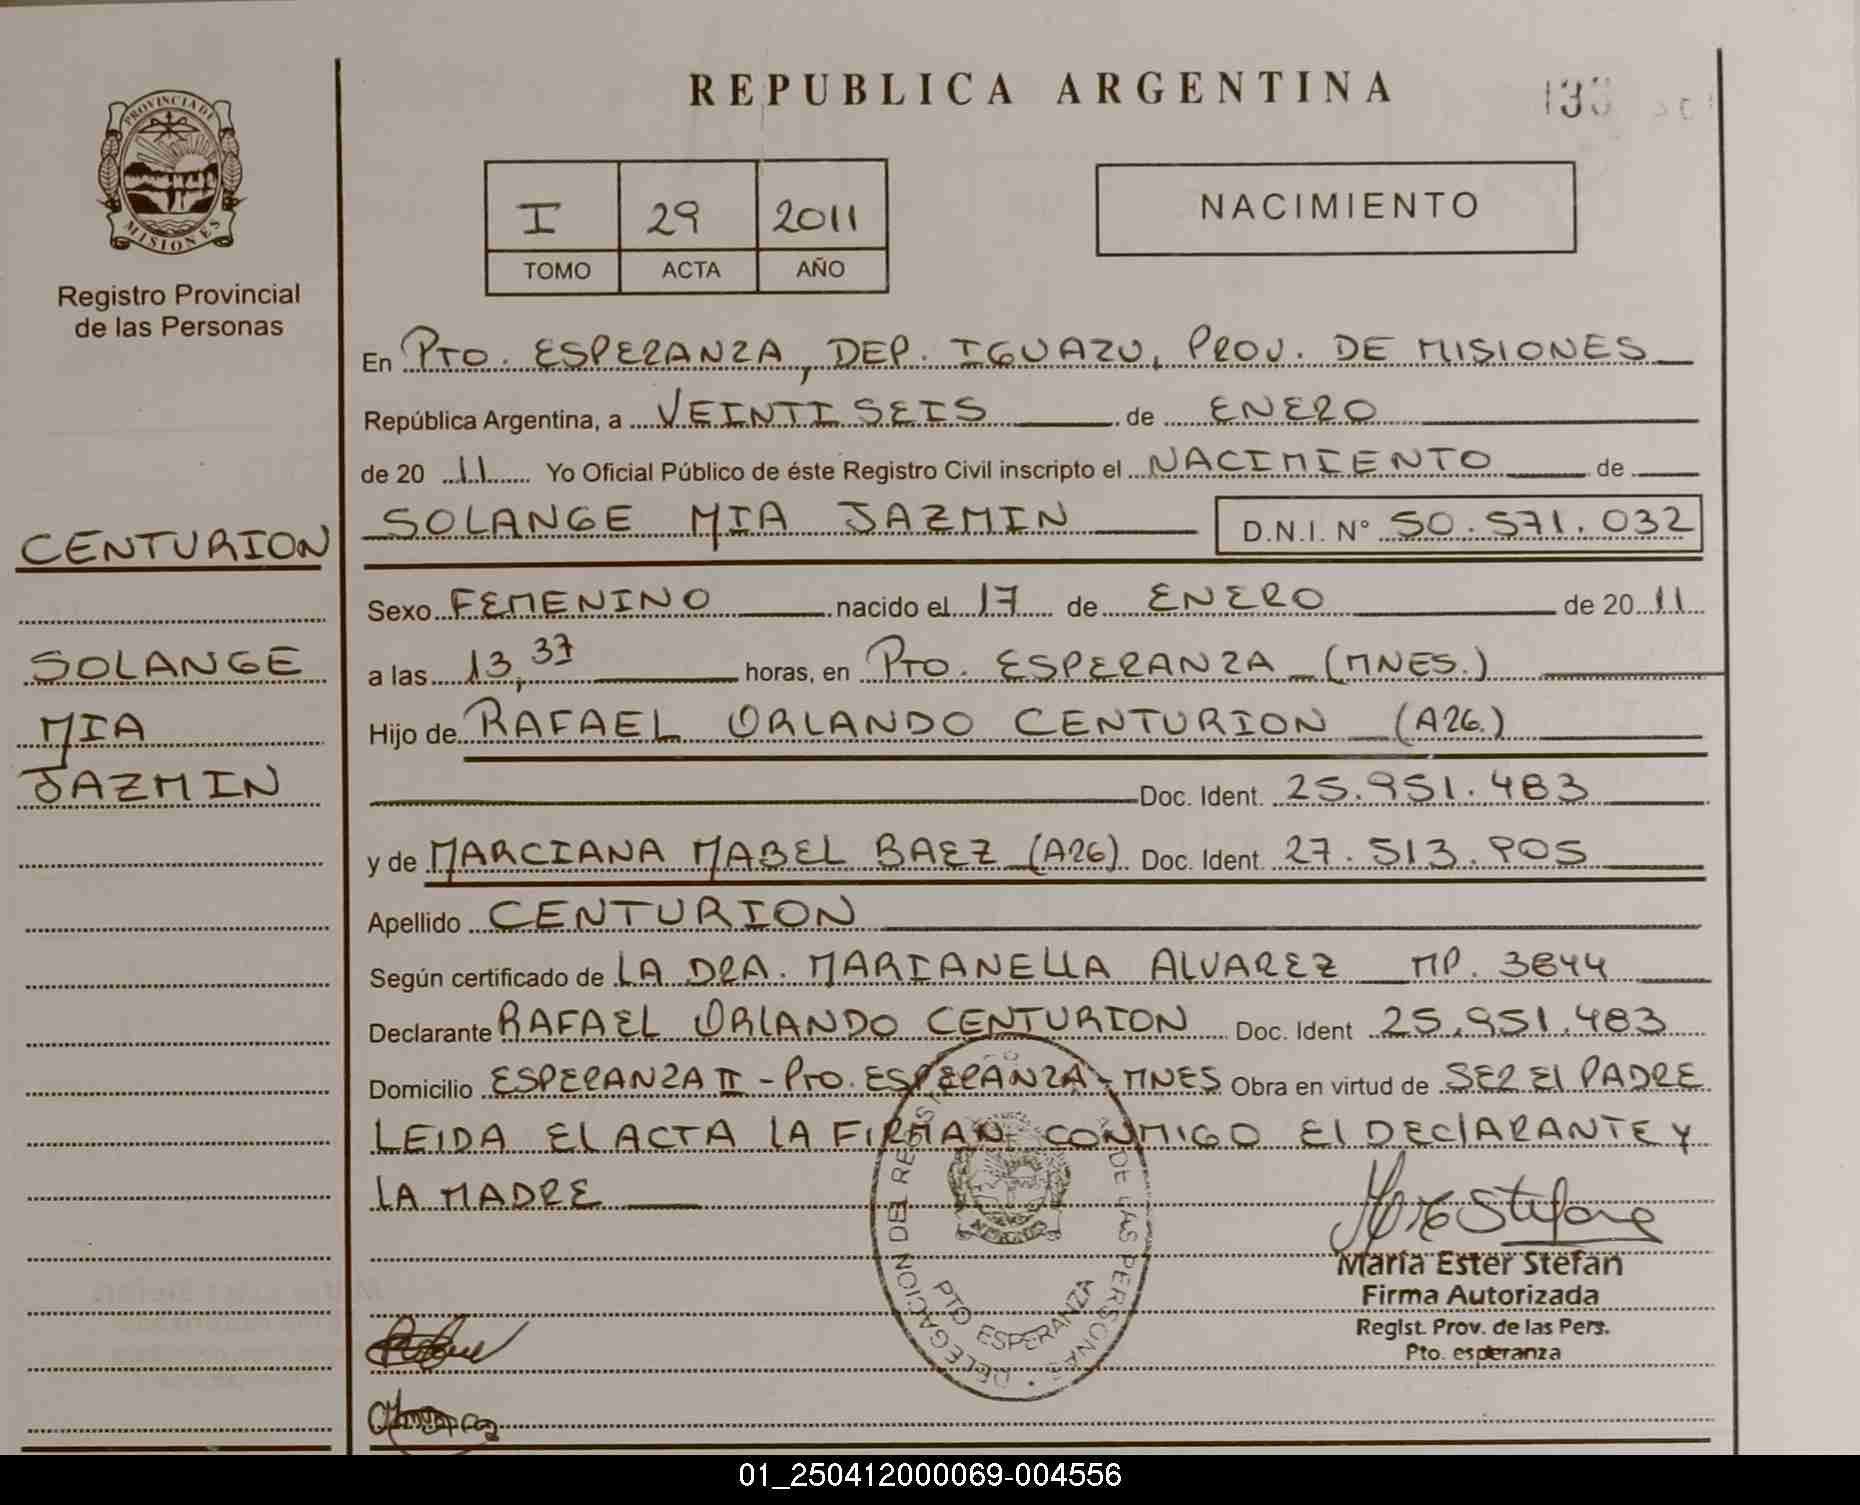 REPUBLICA ARGENTINA
PROVINCIA DE
MISIONES
Registro Provincial
de las Personas
I 29 2011
TOMO ACTA AÑO
NACIMIENTO
En PTO. ESPERANZA, DEP. IGUAZU, PROV. DE MISIONES
República Argentina, a VEINTISEIS de ENERO
de 20 11 Yo Oficial Público de éste Registro Civil inscripto el NACIMIENTO de
SOLANGE MIA JAZMIN D.N.I. Nº 50.571.032
CENTURION
SOLANGE
MIA
JAZMIN
Sexo FEMENINO nacido el 17 de ENERO de 20 11
a las 13,37 horas, en PTO. ESPERANZA (MNES.)
Hijo de RAFAEL ORLANDO CENTURION (A26.)
Doc. Ident. 25.951.483
y de MARCIANA MABEL BAEZ (A26) Doc. Ident. 27.513.905
Apellido CENTURION
Según certificado de LA DRA. MARIANELLA ALVAREZ MP. 3844
Declarante RAFAEL ORLANDO CENTURION Doc. Ident 25.951.483
Domicilio ESPERANZA II - PTO. ESPERANZA - MNES Obra en virtud de SER EL PADRE
LEIDA EL ACTA LA FIRMAN CONMIGO El DEClARANTE Y
LA MADRE
DELEGACION DEL REG DE LAS PERSONAS
PTO ESPERANZA
María Ester Stefan
Firma Autorizada
Regist. Prov. de las Pers.
Pto. esperanza
01_250412000069-004556